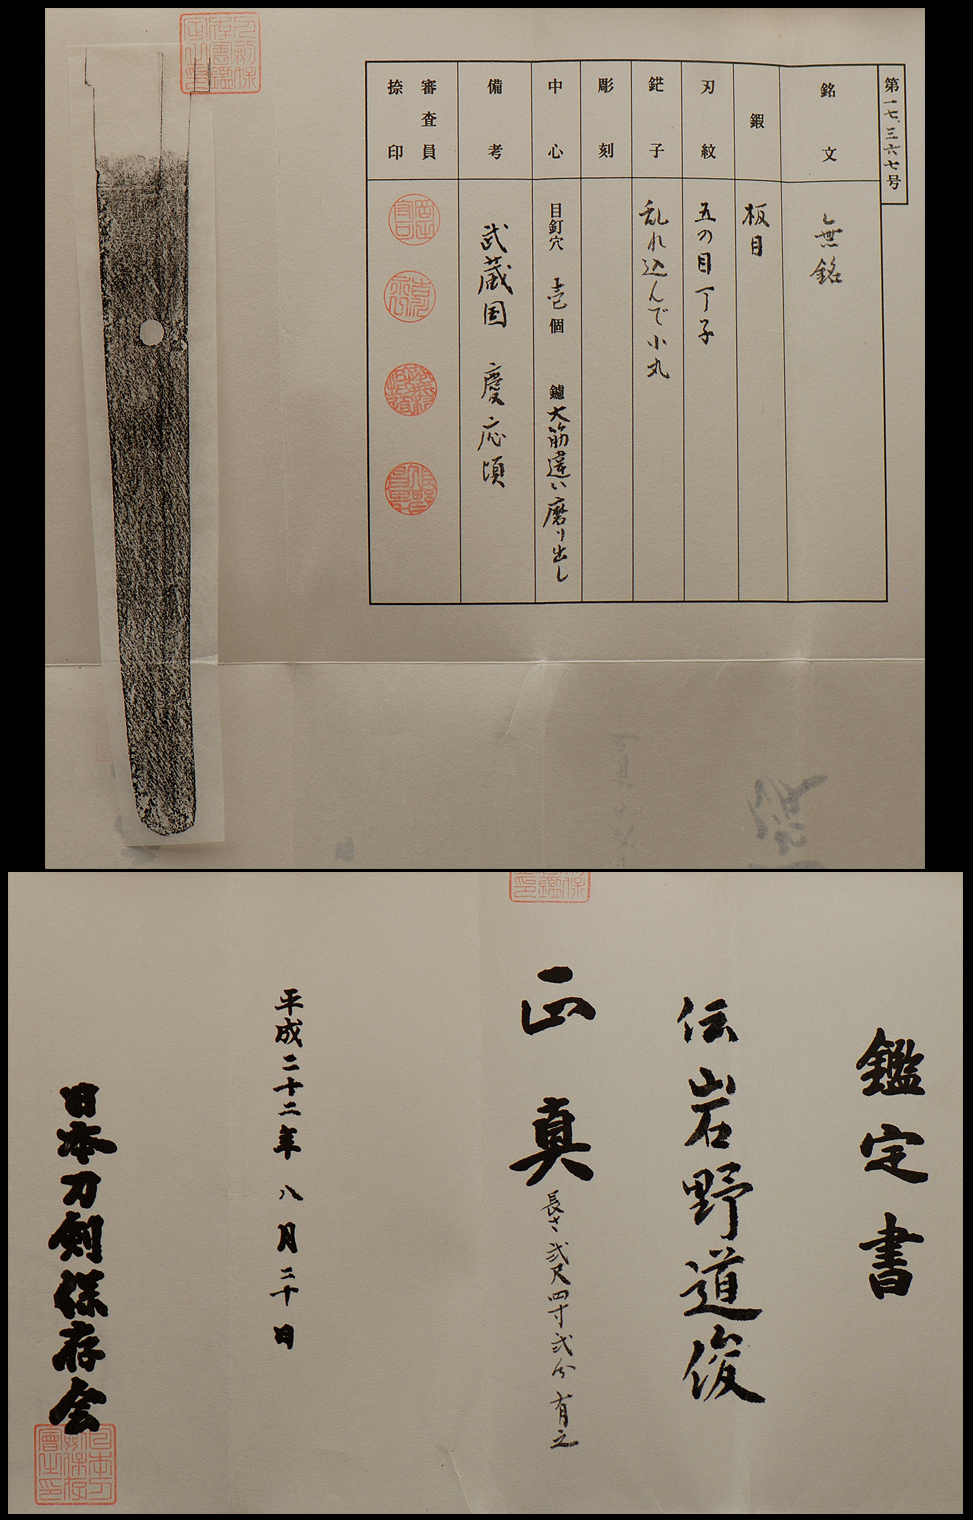 第一七、三六七号
銘文
無銘
鍜
板目
刃紋
五の目丁子
鋩子
乱れ込んで小丸
彫刻
中心
目釘穴 壱個 鑢 大筋違い磨り出し
備考
武蔵国 慶応頃
審査員
捺印
鑑定書
伝岩野道俊
正真
長さ弐尺四寸弐分有之
平成二十二年八月二十日
日本刀剣保存会